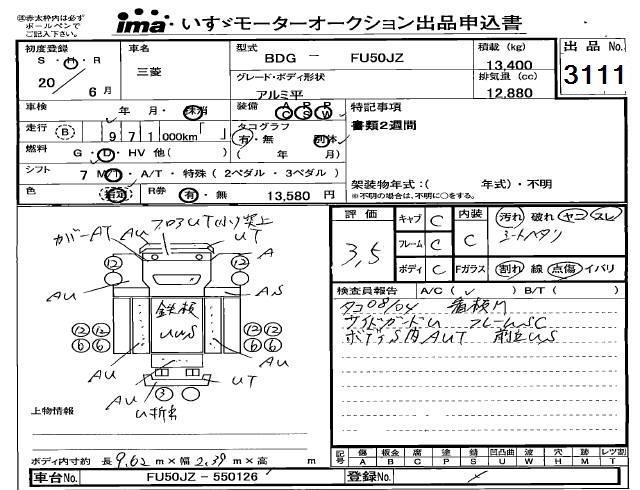 ㊟赤太枠内は必ず
ボールペンで
ご記入下さい。
ima いすゞモーターオークション出品申込書
初度登録
S・H・R
20 6月
車名
三菱
型式
BDG － FU50JZ
積載 (kg)
13,400
グレード・ボディ形状
アルミ平
排気量 (cc)
12,880
出品 No.
3111
車検 年 月・抹消
装備 AC PS RW
特記事項
書類2週間
走行 (B) 971,000km「 」
タコグラフ
有・無 別体
( 年 月)
燃料 G・D・HV 他( )
シフト 7 M/T・A/T・特殊(2ペダル・3ペダル)
架装物年式:( 年式)・不明
※不明の場合は、不明に○をする。
色 R券 有・無 13,580 円
評価 3,5
キャブ C
フレーム C
ボディ C
内装 C
Fガラス
汚れ 破れ ヤニ スレ
シートヘタリ
割れ 線 点傷 イバリ
検査員報告 A/C( ✓ ) B/T( )
タコ08/04 看板M
サイドガードU フレームSC
ボディS内AUT 前立US
カバーAT
AU
UT
A
AU
AS
鉄板
UWS
AU
AU
AU
UT
U折れ
12
12
12 12
6 6
12 12
6 6
3
上物情報
ボディ内寸約 長 9.62 m×幅 2.39 m×高 m
記号 傷 A 板金 B 腐 C 塗 P 錆 S 凹凸曲 U 波 W 穴 H 跡 M レツ割 T
車台No. FU50JZ－550126
登録No.